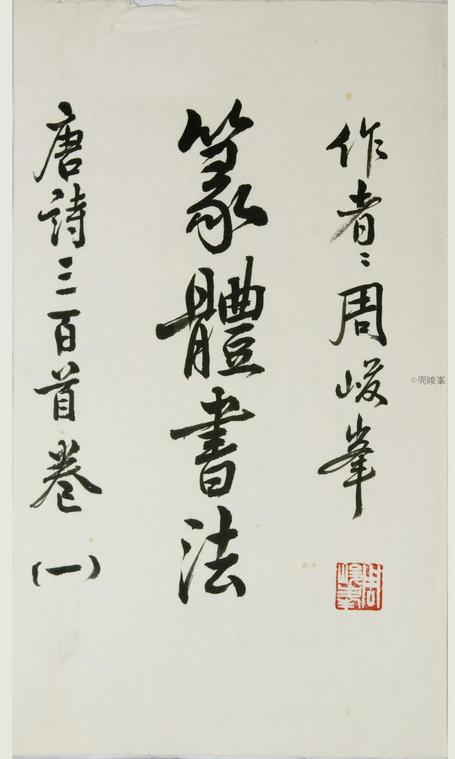 作者：周峻峯
篆體書法
唐詩三百首卷(一)
周峻峯
©周峻峯